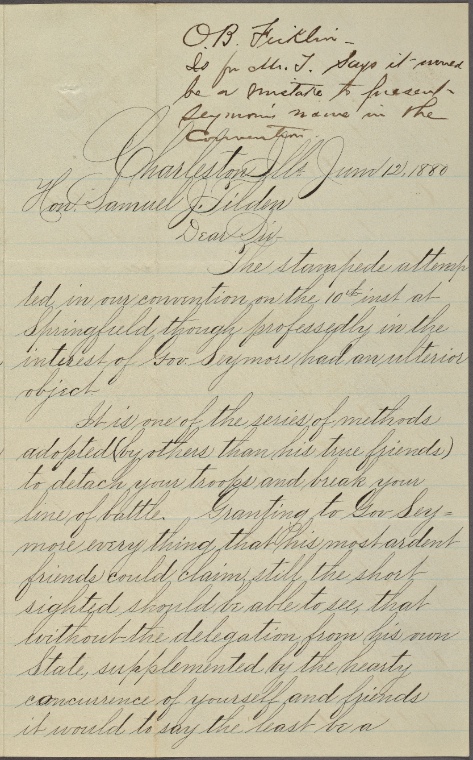 O.B. Ficklin –
Is for Mr. T. Says it would
be a mistake to present
Seymour's name in the
Convention.
Charleston Ills June 12, 1880
Hon. Samuel J. Tilden
Dear Sir
The stampede attemp
ted in our convention on the 10th inst at
Springfield though professedly in the
interest of Gov. Seymore had an ulterior
object
It is one of the series of methods
adopted (by others than his true friends)
to detach your troops and break your
line of battle. Granting to Gov Sey=
more every thing that his most ardent
friends could claim, still the short
sighted should be able to see, that
without the delegation from his own
State, supplemented by the hearty
concurrence of yourself and friends
it would to say the least be a